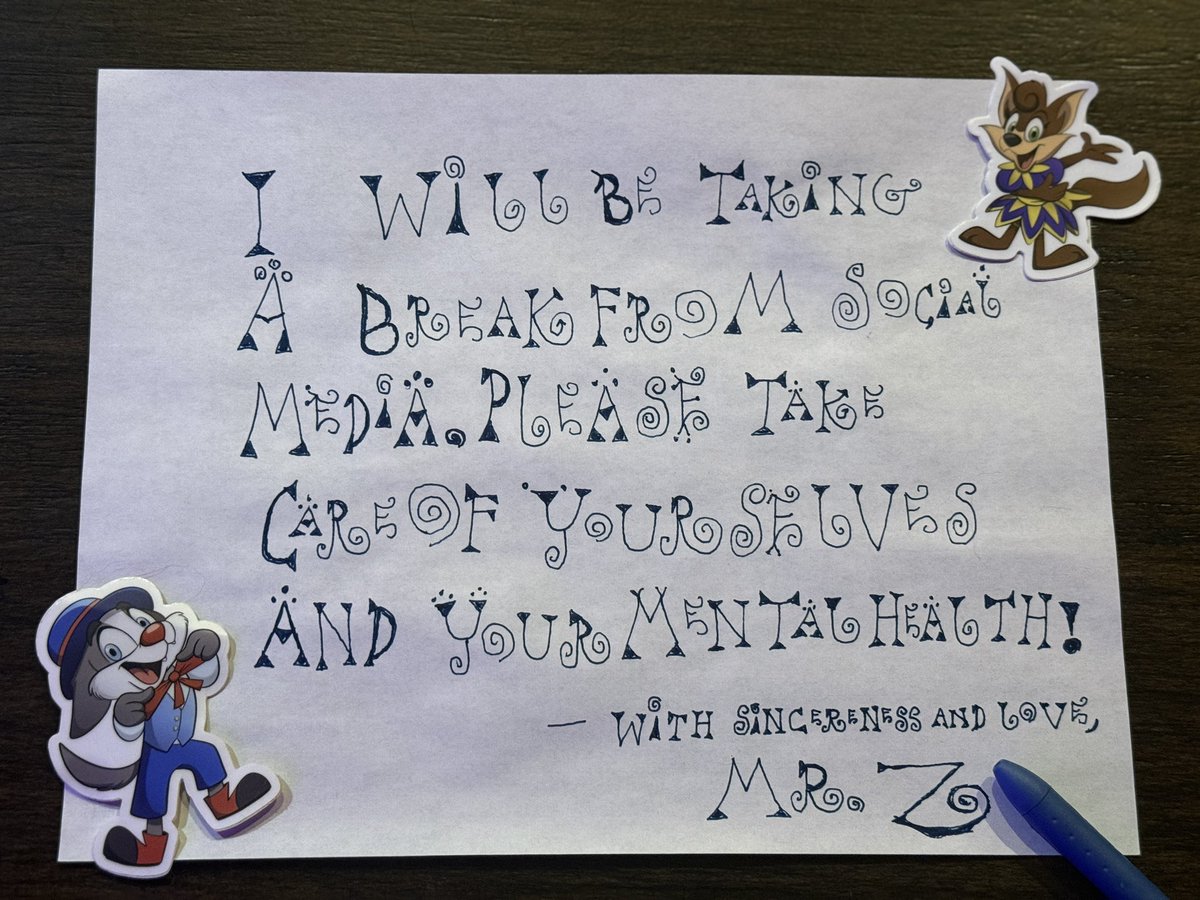 I WiLL BE TAKiNG
Ä BREAK FROM SOCiAL
MEDiÄ. PLEÄSE TÄKE
CÄRE OF YOURSELVES
ÄND ŸOUR MENTÄL HEÄLTH!
— WiTH SiNCERENESS AND LOVE,
MR. Z